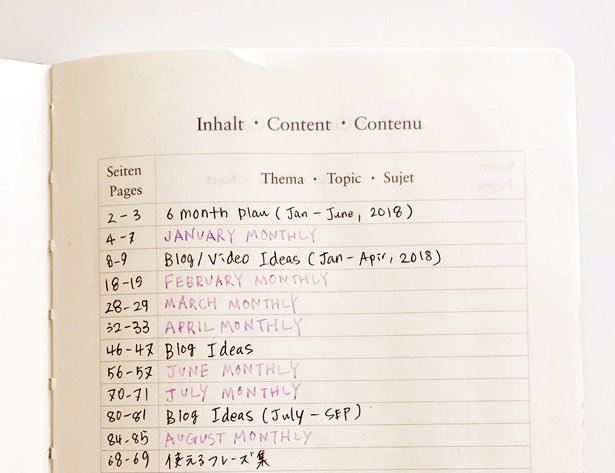 Inhalt • Content • Contenu
Seiten
Pages
Thema • Topic • Sujet
2-3 6 month plan (Jan - June, 2018)
4-7 JANUARY MONTHLY
8-9 Blog/Video Ideas (Jan - Apir, 2018)
18-19 FEBRUARY MONTHLY
28-29 MARCH MONTHLY
32-33 APRIL MONTHLY
46-47 Blog Ideas
56-57 JUNE MONTHLY
70-71 JULY MONTHLY
80-81 Blog Ideas (July - SEP)
84-85 AUGUST MONTHLY
68-69 使えるフレーズ集